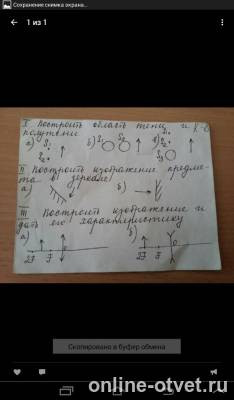 Сохранение снимка экрана...
1 из 1
I Построить область тени и
полутени
а) S1 б) S1 S2 в) S1
S2 S2
S3
II Построить изображение предме-
та в зеркале
а) б)
III Построить изображение и
дать его характеристику
а) б)
2F F 2F F O
Скопировано в буфер обмена
online-otvet.ru